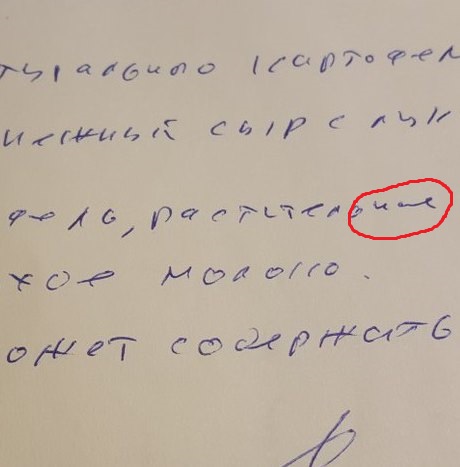 турального картофел
нежный сыр с лук
фель, растительное
хое молоко.
ожет содержать